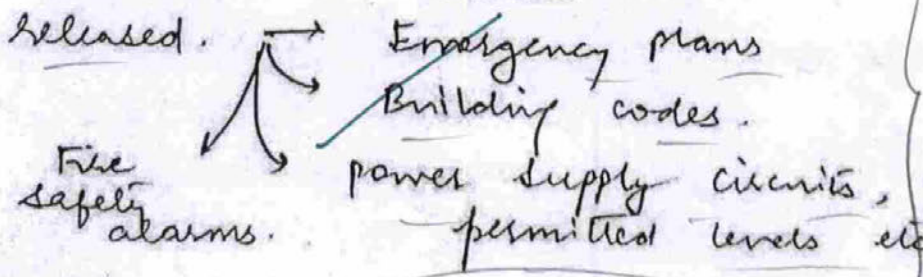 released. → Emergency plans
Building codes.
Fire safety alarms.
power supply circuits,
permitted levels etc